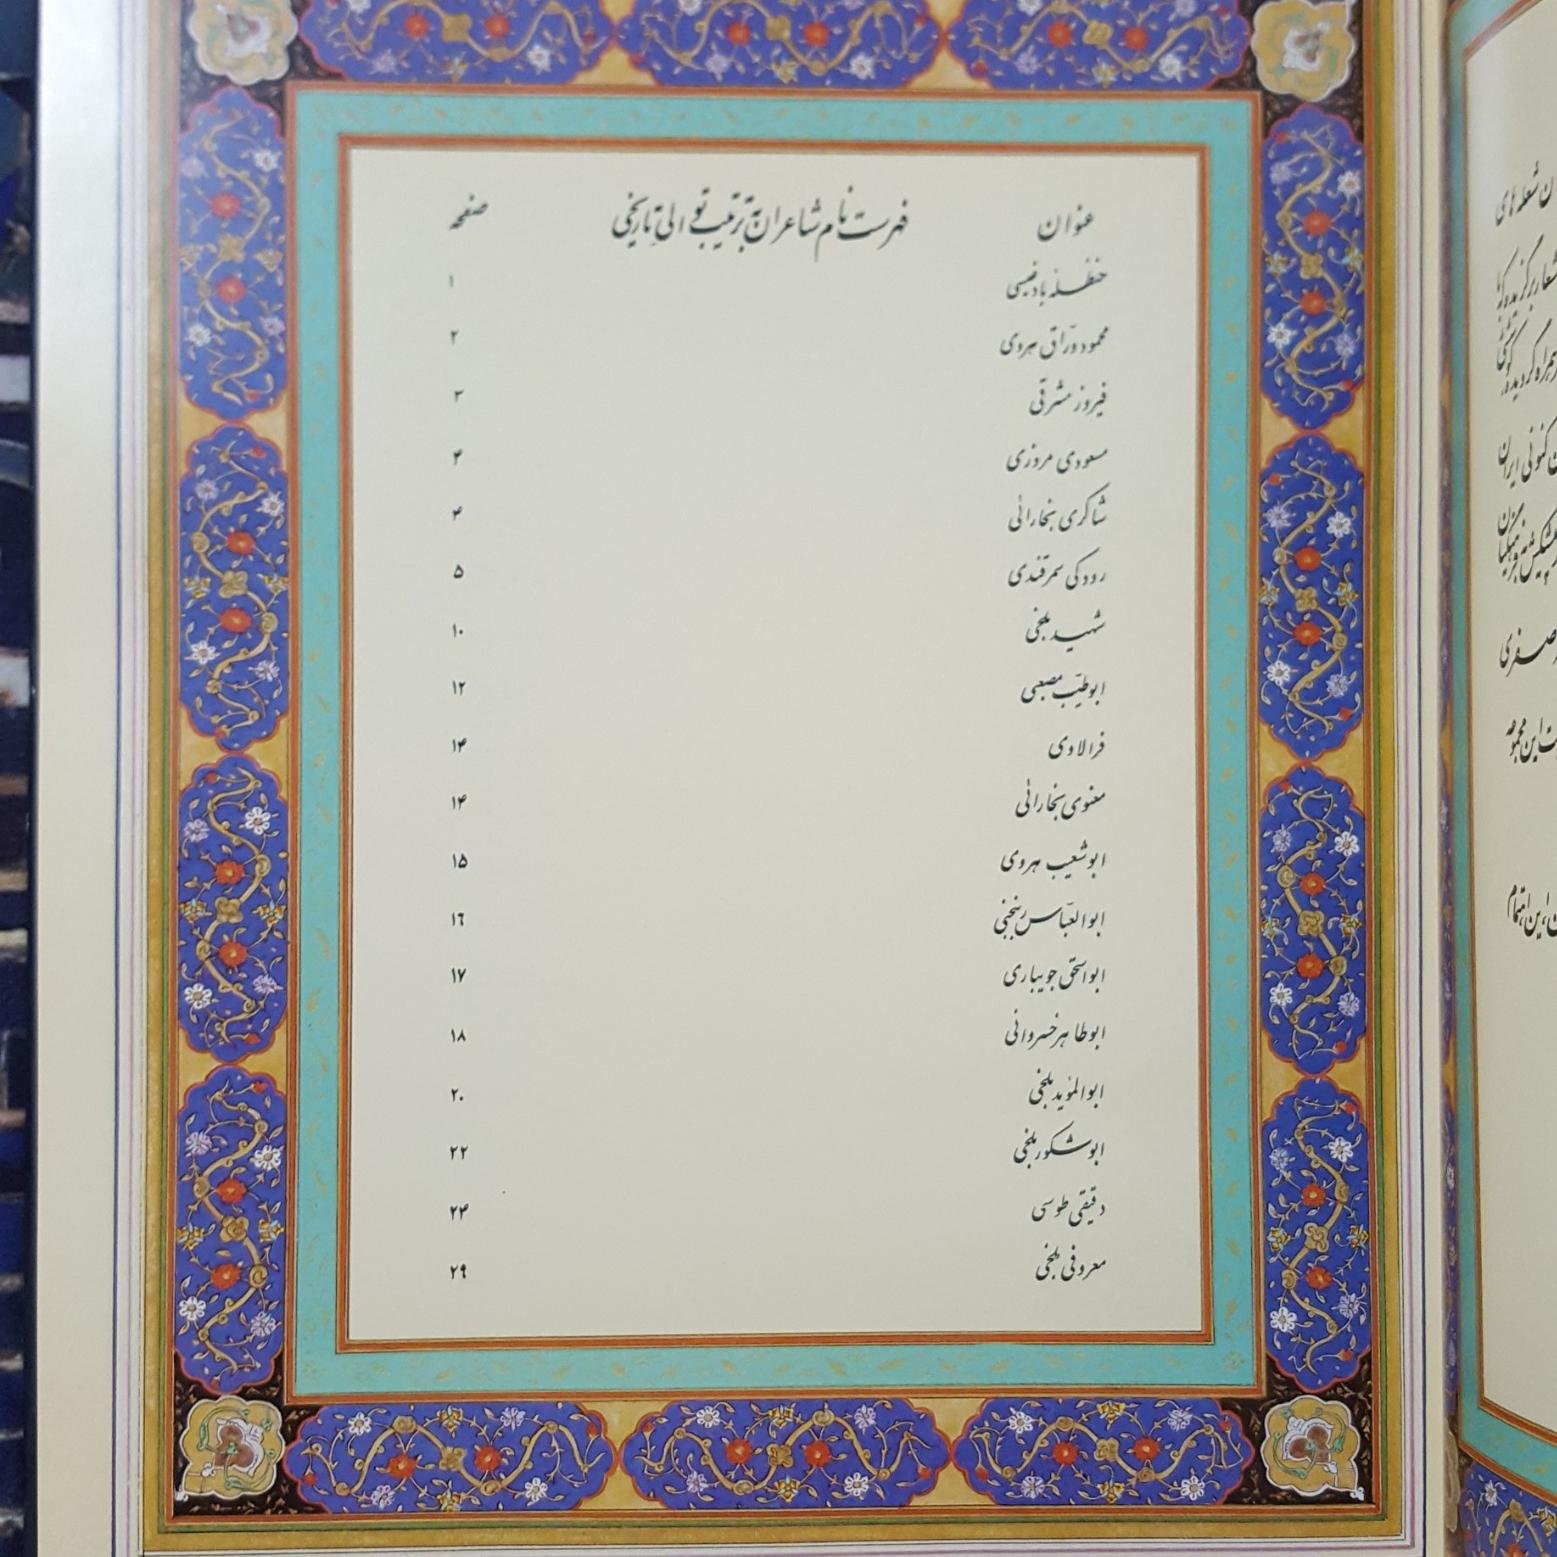 عنوان فهرست نام شاعران به ترتیب توالی تاریخی صفحه
حنظله بادغیسی ۱
محمود ورّاق هروی ۲
فیروز مشرقی ۳
مسعودی مروزی ۴
شاکری بخارائی ۴
رودکی سمرقندی ۵
شهید بلخی ۱۰
ابوطیّب مصعبی ۱۲
فرالاوی ۱۴
معنوی بخارائی ۱۴
ابوشعیب هروی ۱۵
ابوالعبّاس ربنجنی ۱۶
ابواسحق جویباری ۱۷
ابوطاهر خسروانی ۱۸
ابوالمؤید بلخی ۲۰
ابوشکور بلخی ۲۲
دقیقی طوسی ۲۴
معروفی بلخی ۲۹
ن شعله های
همراه گردیده
کنونی ایران
صفری
ت این مجموعه
این اهتمام